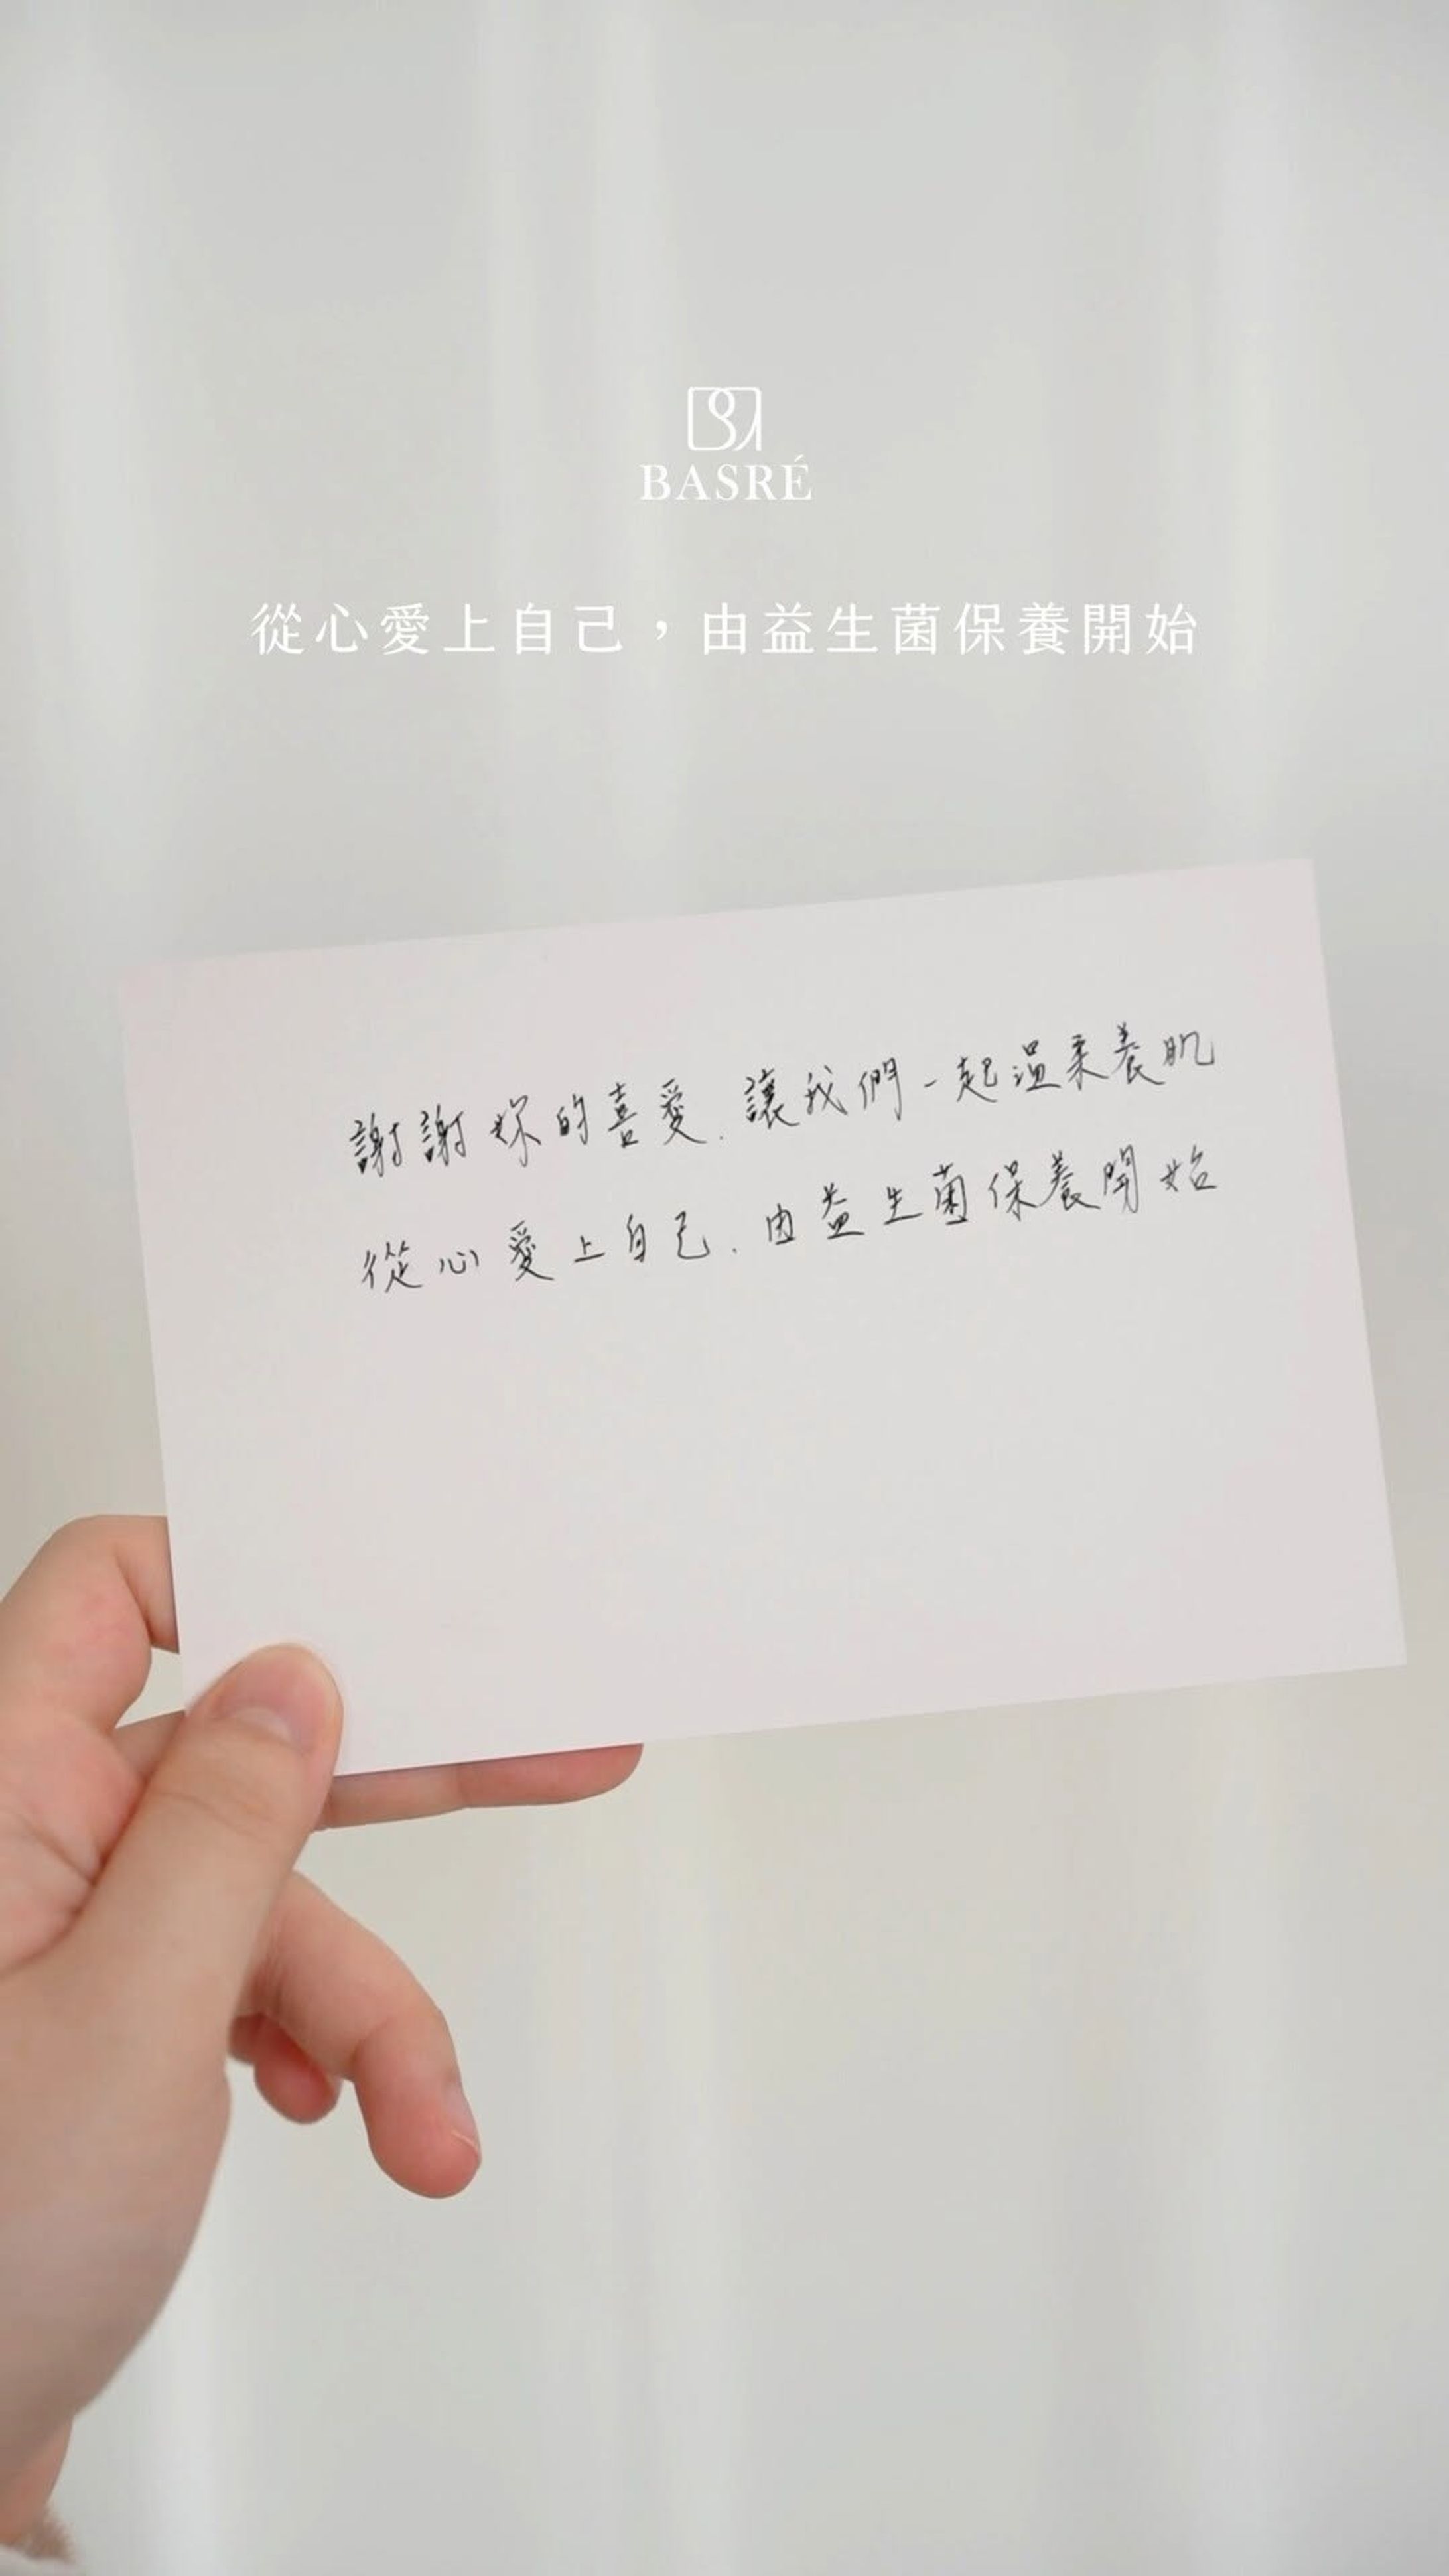 BASRÉ
從心愛上自己，由益生菌保養開始
謝謝妳的喜愛.讓我們一起溫柔養肌
從心愛上自己.由益生菌保養開始